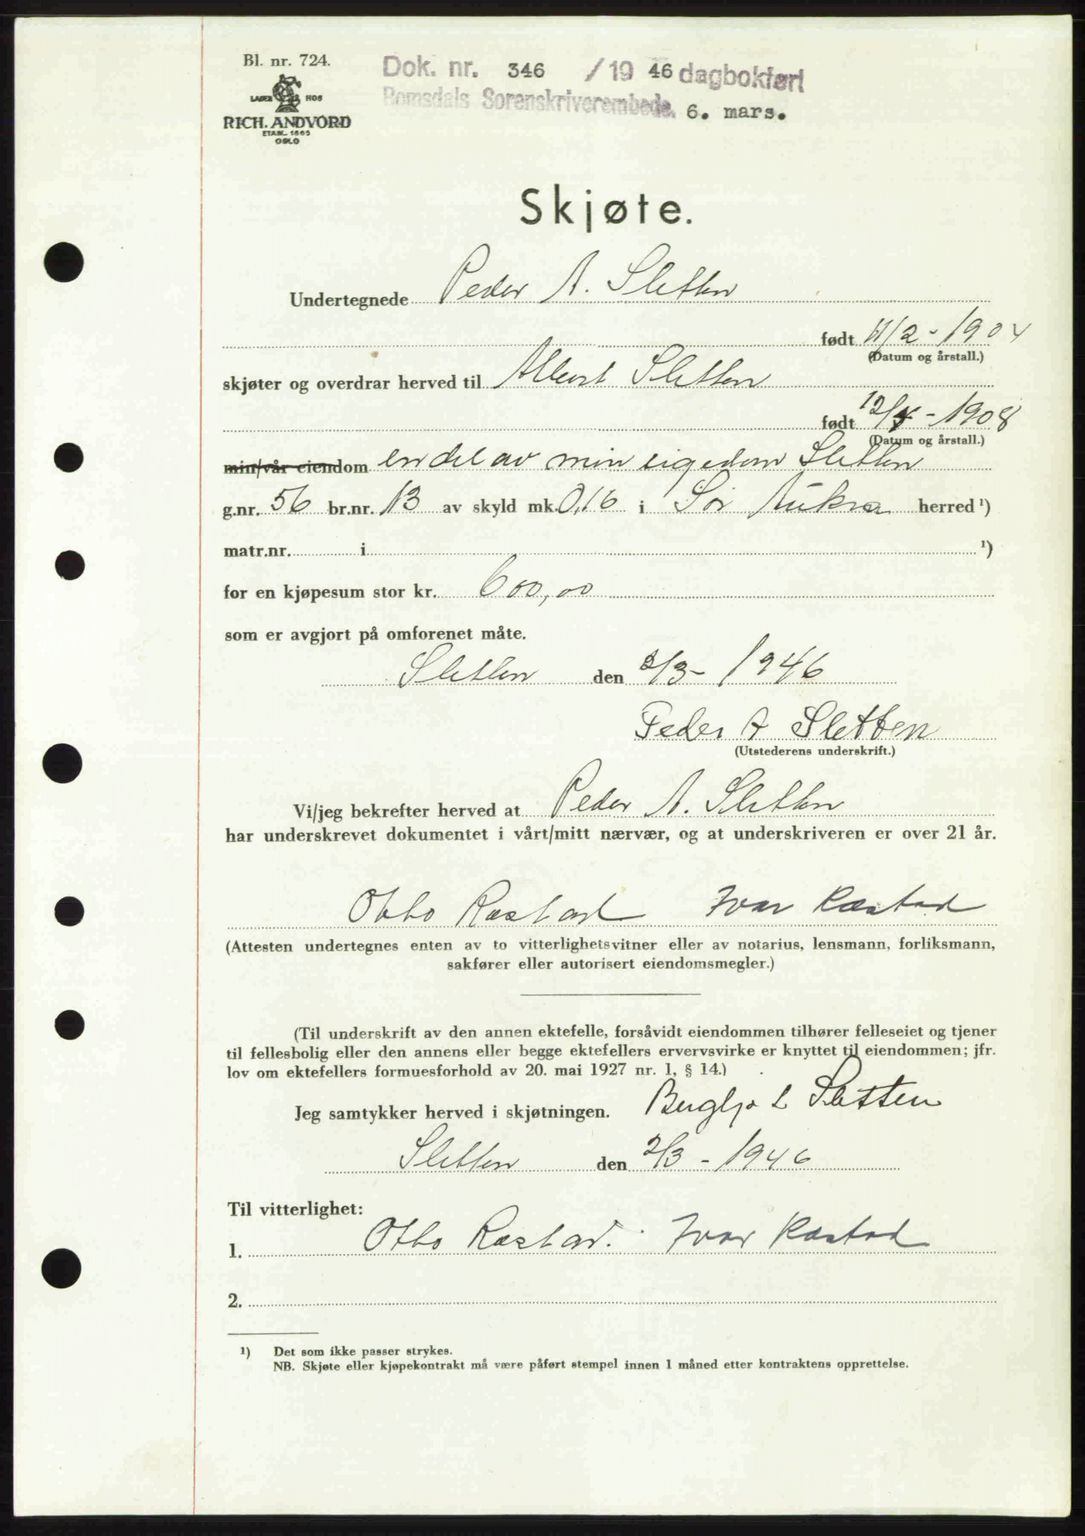 Bl. nr. 724.
LAGER HOS
RICH. ANDVORD
ETABL. 1865
OSLO
Dok. nr. 346 / 19 46 dagbokført
Romsdals Sorenskriverembede. 6. mars.
Skjøte.
Undertegnede Peder A. Sletten
født 11/2 - 1904
(Datum og årstall.)
skjøter og overdrar herved til Albert Sletten
født 12/ - 1908
(Datum og årstall.)
min/vår eiendom en del av min eigedom Sletten
g.nr. 56 br.nr. 13 av skyld mk. 0,16 i Sør Aukra herred ¹)
matr.nr. i ¹)
for en kjøpesum stor kr. 600,00
som er avgjort på omforenet måte.
Sletten den 2/3 - 1946
Peder A Sletten
(Utstederens underskrift.)
Vi/jeg bekrefter herved at Peder A. Sletten
har underskrevet dokumentet i vårt/mitt nærvær, og at underskriveren er over 21 år.
Otto Røstad Ivar Røstad
(Attesten undertegnes enten av to vitterlighetsvitner eller av notarius, lensmann, forliksmann,
sakfører eller autorisert eiendomsmegler.)
(Til underskrift av den annen ektefelle, forsåvidt eiendommen tilhører felleseiet og tjener
til fellesbolig eller den annens eller begge ektefellers ervervsvirke er knyttet til eiendommen; jfr.
lov om ektefellers formuesforhold av 20. mai 1927 nr. 1, § 14.)
Jeg samtykker herved i skjøtningen. L Sletten
Sletten den 2/3 - 1946
Til vitterlighet:
1. Otto Røstad. Ivar Røstad
2.
¹) Det som ikke passer strykes.
NB. Skjøte eller kjøpekontrakt må være påført stempel innen 1 måned etter kontraktens opprettelse.